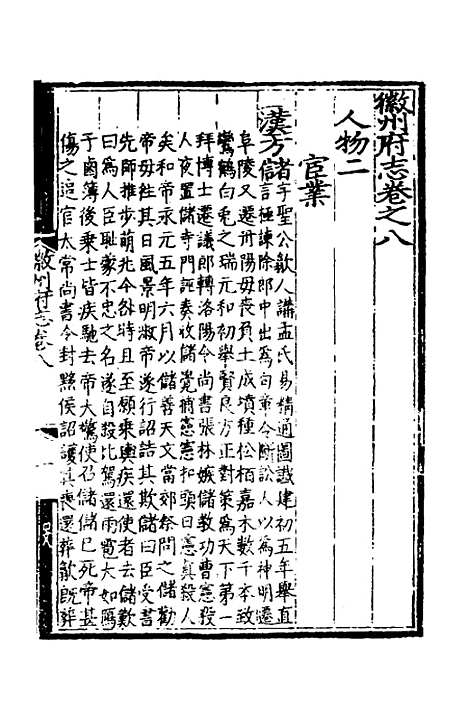 徽州府志卷之八
人物二
宦業
漢方儲字聖公歙人講孟氏易精通圖讖建初五年舉直
言極諫除郎中出為句章令斷訟人以為神明遷
阜陵又遷丹陽毋喪負土成墳種松栢嘉木數千本致
鸞鶴白兎之瑞元和初舉賢良方正對策為天下第一
拜博士遷議郎轉洛陽令尚書張林嫉儲教功曹憲殺
人夜置儲寺門誣奏收儲覺俏憲憲扣頭曰憲真殺人
矣和帝永元五年六月以儲善天文當郊祭問之儲勸
帝毋徃其日風景明淑帝遂行詔詰其欺儲曰臣受書
先師推步萌兆今谷時且至願乗輿疾還使者去儲歎
曰為人臣耻蒙不忠之名遂自殺比駕還雨雹大如鴈
子鹵簿後乗士皆疾馳去帝大驚使召儲儲已死帝甚
傷之追官太常尚書令封黟侯詔護其喪還葬歙既葬
徽州府志卷八
一